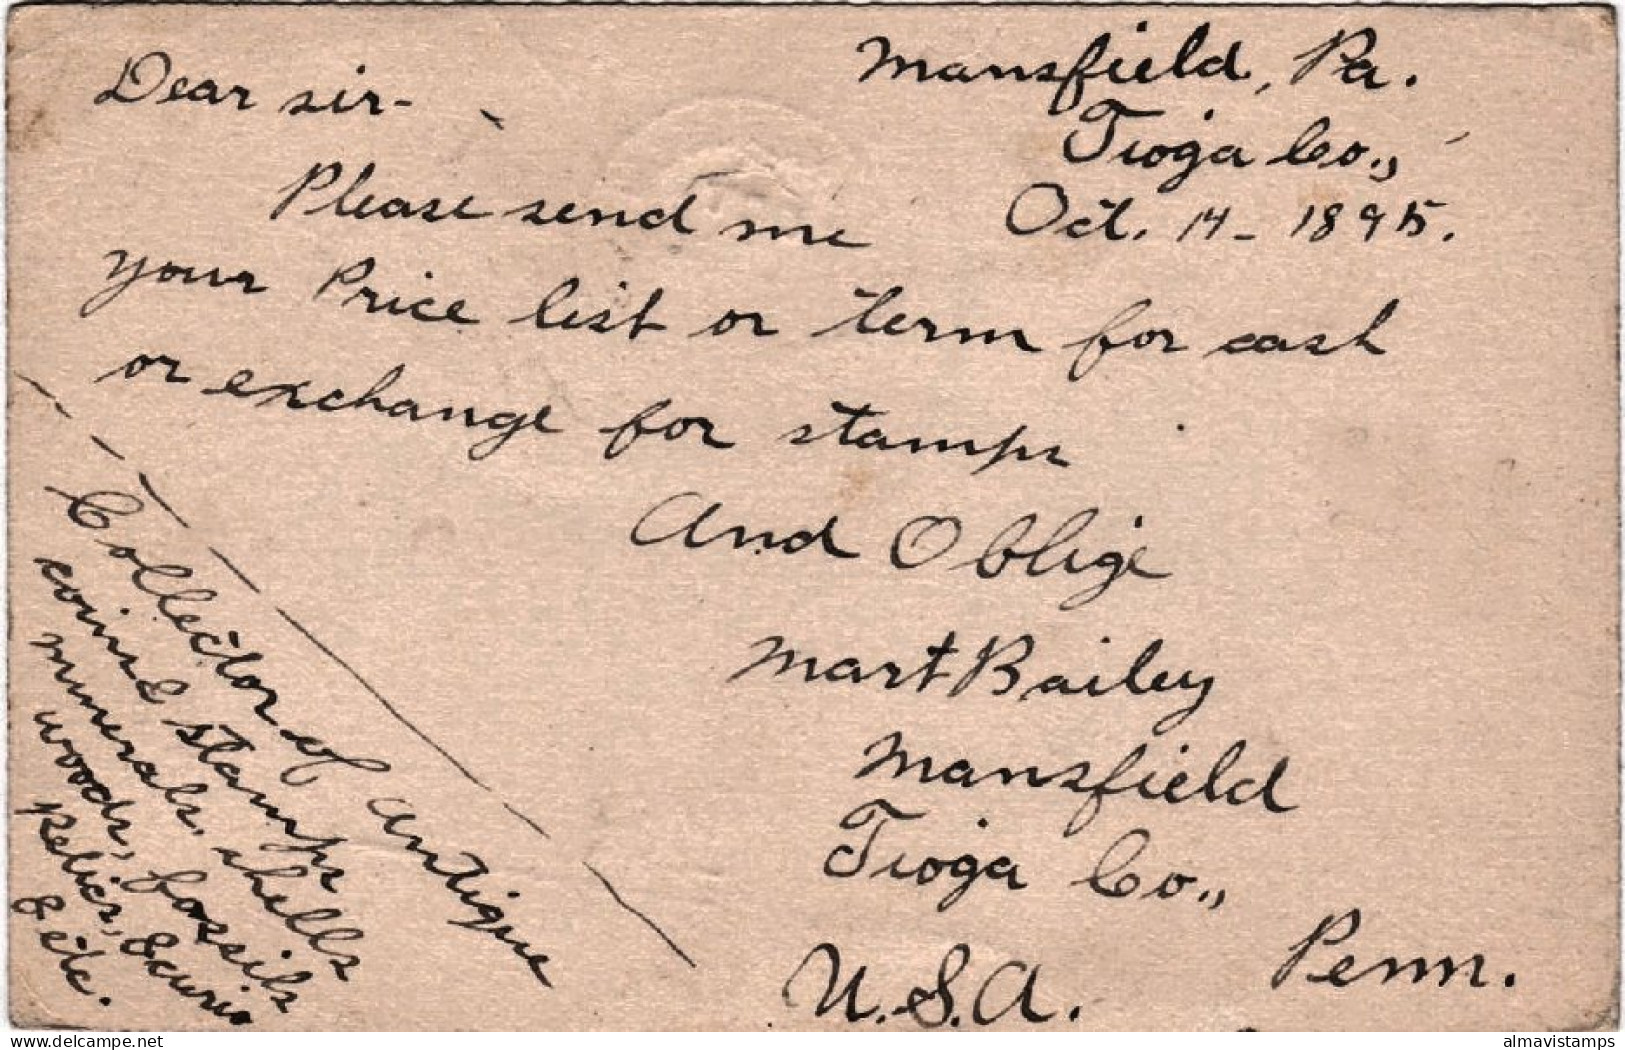 Mansfield, Pa.
Tioga Co.,
Oct. 14 - 1895.
Dear sir -
Please send me
your Price list or term for cash
or exchange for stamps
And Oblige
Mart Bailey
Mansfield
Tioga Co.,
Penn.
U.S.A.
Collector of antique
coins & stamps
minerals, shells
woods, fossils
relics, & curio
& etc.
www.delcampe.net
almavistamps